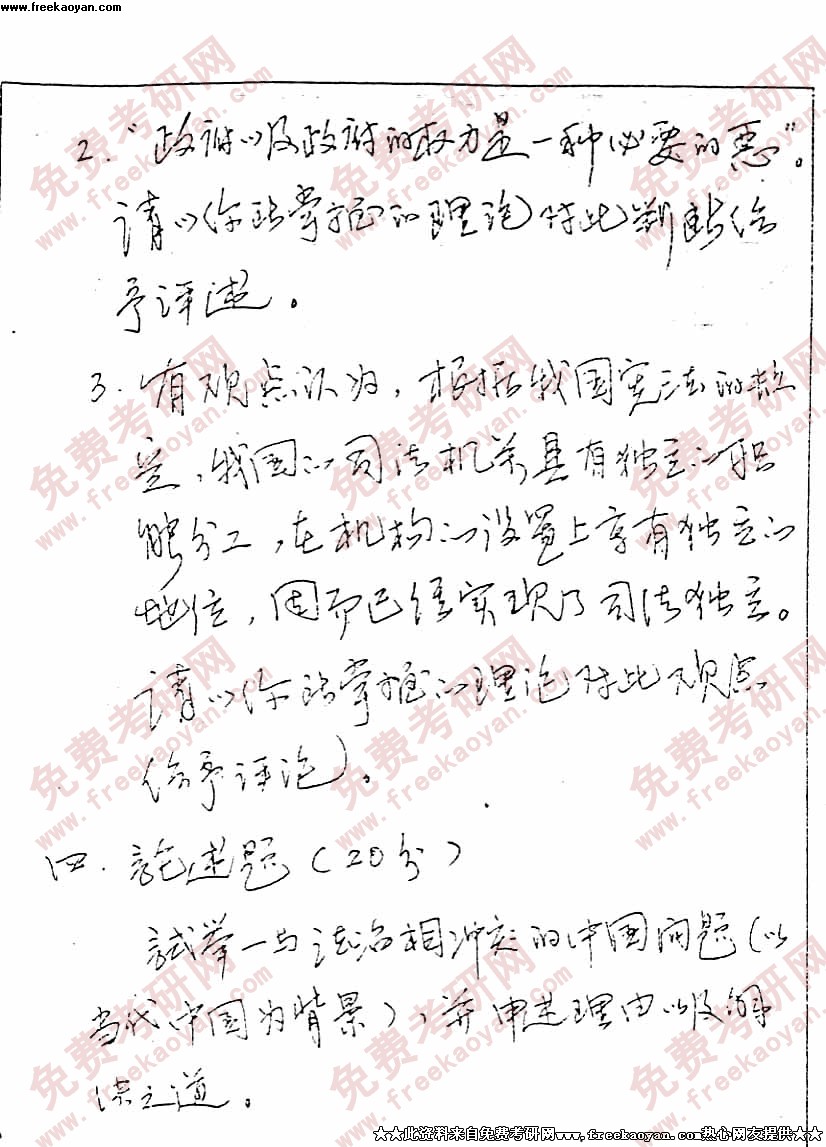 www.freekaoyan.com
2. "政府以及政府的权力是一种必要的恶"。
请以你所掌握的理论对此判断给
予评述。
3. 有观点认为，根据我国宪法的规
定，我国的司法机关具有独立的职
能分工，在机构的设置上享有独立的
地位，因而已经实现了司法独立。
请以你所掌握的理论对此观点
给予评论。
四. 論述题（20分）
試举一与法治相冲突的中国问题（以
当代中国为背景），并申述理由以及解
决之道。
免费考研网
www.freekaoyan.com
★★此资料来自免费考研网www.freekaoyan.com热心网友提供★★